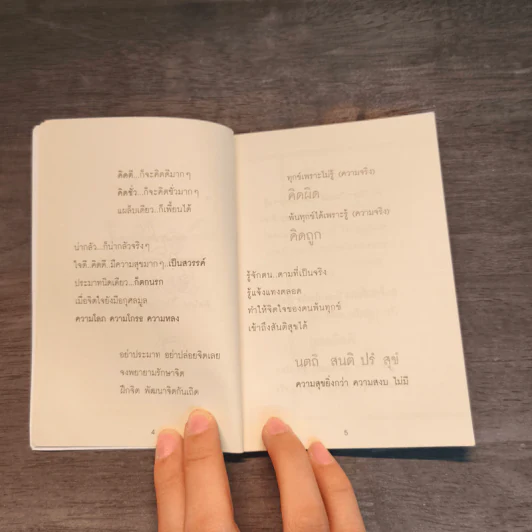 คิดดี..ก็จะคิดดีมากๆ
คิดชั่ว..ก็จะคิดชั่วมากๆ
แผล็บเดียว..ก็เพี้ยนได้
น่ากลัว...ก็น่ากลัวจริงๆ
ใจดี..คิดดี..มีความสุขมากๆ..เป็นสวรรค์
ประมาทนิดเดียว...ก็ตกนรก
เมื่อจิตใจยังมีอกุศลมูล
ความโลภ ความโกรธ ความหลง
อย่าประมาท อย่าปล่อยจิตเลย
จงพยายามรักษาจิต
ฝึกจิต พัฒนาจิตกันเถิด
4
ทุกข์เพราะไม่รู้ (ความจริง)
คิดผิด
พ้นทุกข์ได้เพราะรู้ (ความจริง)
คิดถูก
รู้จักตน..ตามที่เป็นจริง
รู้แจ้งแทงตลอด
ทำให้จิตใจของตนพ้นทุกข์
เข้าถึงสันติสุขได้
นตฺถิ สนฺติ ปรํ สุขํ
ความสุขยิ่งกว่า ความสงบ ไม่มี
5